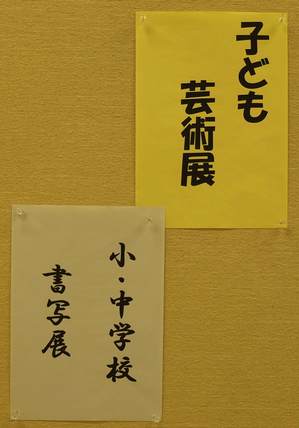 子ども
芸術展
小・中学校
書写展